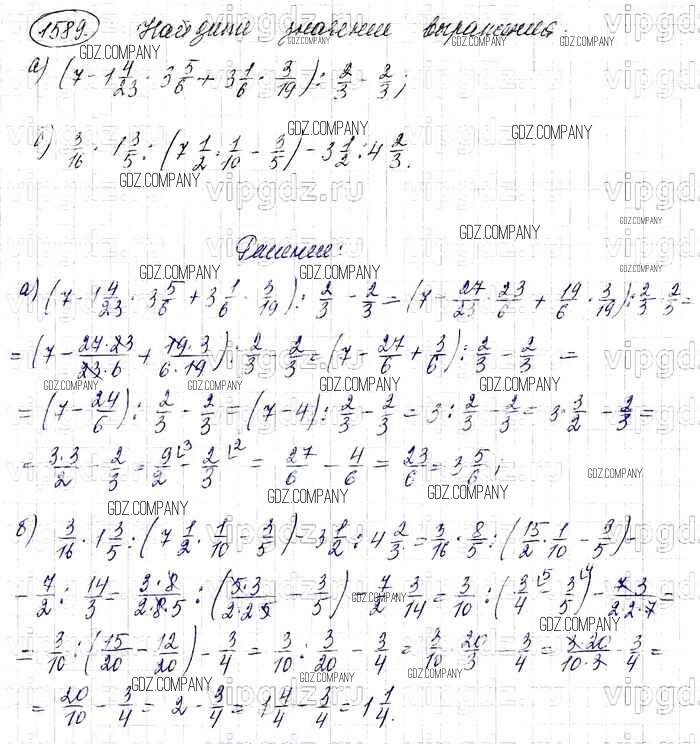 1589. Найдите значение выражения.
а) (7 - 1 4/23 · 3 5/6 + 3 1/6 · 3/19) : 2/3 - 2/3;
б) 3/16 · 1 3/5 : (7 1/2 · 1/10 - 3/5) - 3 1/2 : 4 2/3.
Решение:
а) (7 - 1 4/23 · 3 5/6 + 3 1/6 · 3/19) : 2/3 - 2/3 = (7 - 27/23 · 23/6 + 19/6 · 3/19) : 2/3 - 2/3 =
= (7 - 27·23/23·6 + 19·3/6·19) : 2/3 - 2/3 = (7 - 27/6 + 3/6) : 2/3 - 2/3 =
= (7 - 24/6) : 2/3 - 2/3 = (7 - 4) : 2/3 - 2/3 = 3 : 2/3 - 2/3 = 3 · 3/2 - 2/3 =
= 3·3/2 - 2/3 = 9/2 - 2/3 = 27/6 - 4/6 = 23/6 = 3 5/6;
б) 3/16 · 1 3/5 : (7 1/2 · 1/10 - 3/5) - 3 1/2 : 4 2/3 = 3/16 · 8/5 : (15/2 · 1/10 - 3/5) -
- 7/2 : 14/3 = 3·8/2·8·5 : (5·3/2·2·5 - 3/5) - 7/2 · 3/14 = 3/10 : (3/4 - 3/5) - 7·3/2·2·7 =
= 3/10 : (15/20 - 12/20) - 3/4 = 3/10 : 3/20 - 3/4 = 3/10 · 20/3 - 3/4 = 3·20/10·3 - 3/4 =
= 20/10 - 3/4 = 2 - 3/4 = 1 4/4 - 3/4 = 1 1/4.
GDZ.COMPANY
vipgdz.ru